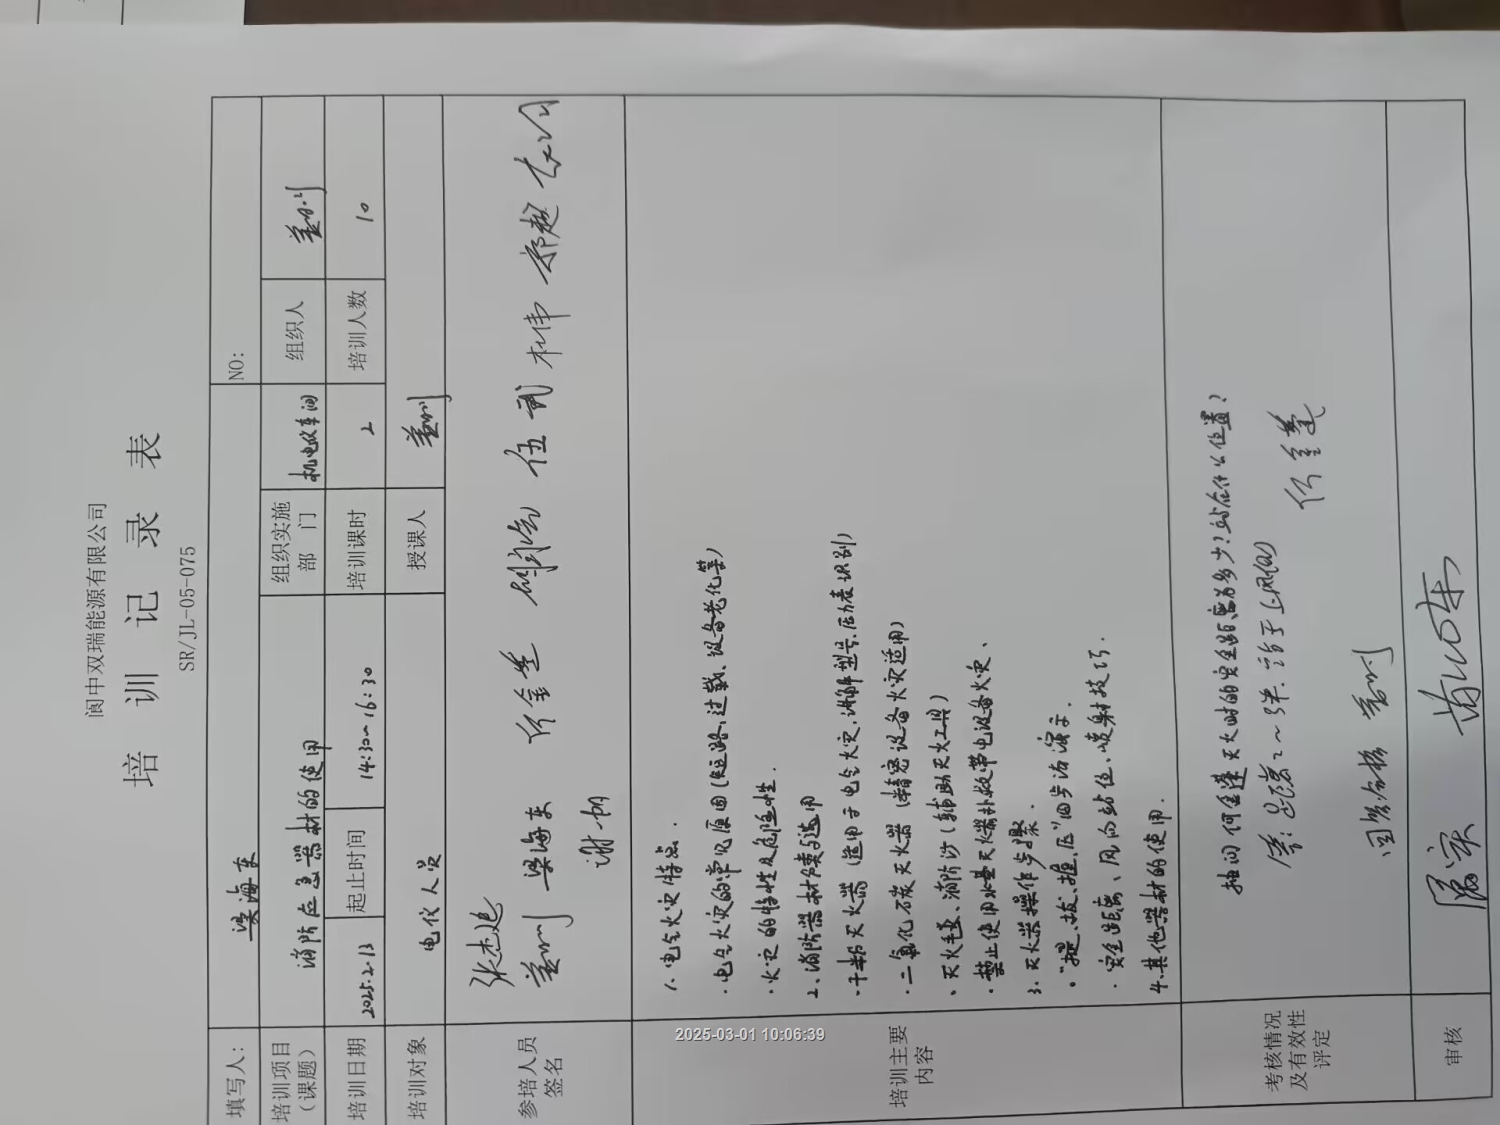 阆中双瑞能源有限公司
培训记录表
SR/JL-05-075
填写人： 梁海东 NO:
培训项目（课题） 消防应急器材的使用 组织实施部门 机电仪车间 组织人
培训日期 2025.2.13 起止时间 14:30~16:30 培训课时 2 培训人数 10
培训对象 电仪人员 授课人
参培人员签名
梁海东 伍 杜伟 郑越
谢一帆
培训主要内容
1. 电气火灾特点.
· 电气火灾的常见原因(短路,过载、设备老化等)
· 火灾的特性及危险性.
2、消防器材种类与选用
· 干粉灭火器 (适用于电气火灾,讲解型号.压力表识别)
· 二氧化碳灭火器 (精密设备火灾适用)
、灭火毛毯、消防沙 (辅助灭火工具)
· 禁止使用水基灭火器扑救带电设备火灾、
3. 灭火器操作步骤.
· "提、拔、握、压"四步法演示.
· 安全距离、风向站位、喷射技巧.
4.其他器材的使用.
考核情况及有效性评定
抽问何金莲灭火时的安全距离为多少?站在什么位置?
答: 距离2~3米. 站于上风向 何金莲
回答合格
审核
2025-03-01 10:06:39